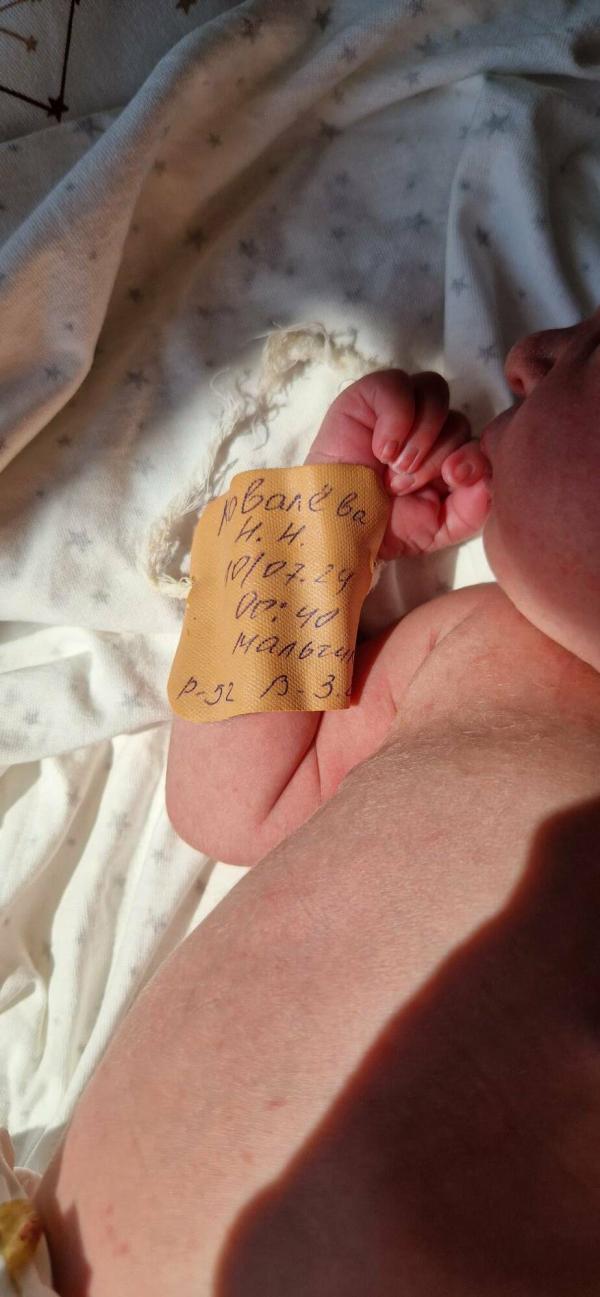 Ковалёва
Н. Н.
10/07.24
00:40
мальчи
Р-52 В-3.